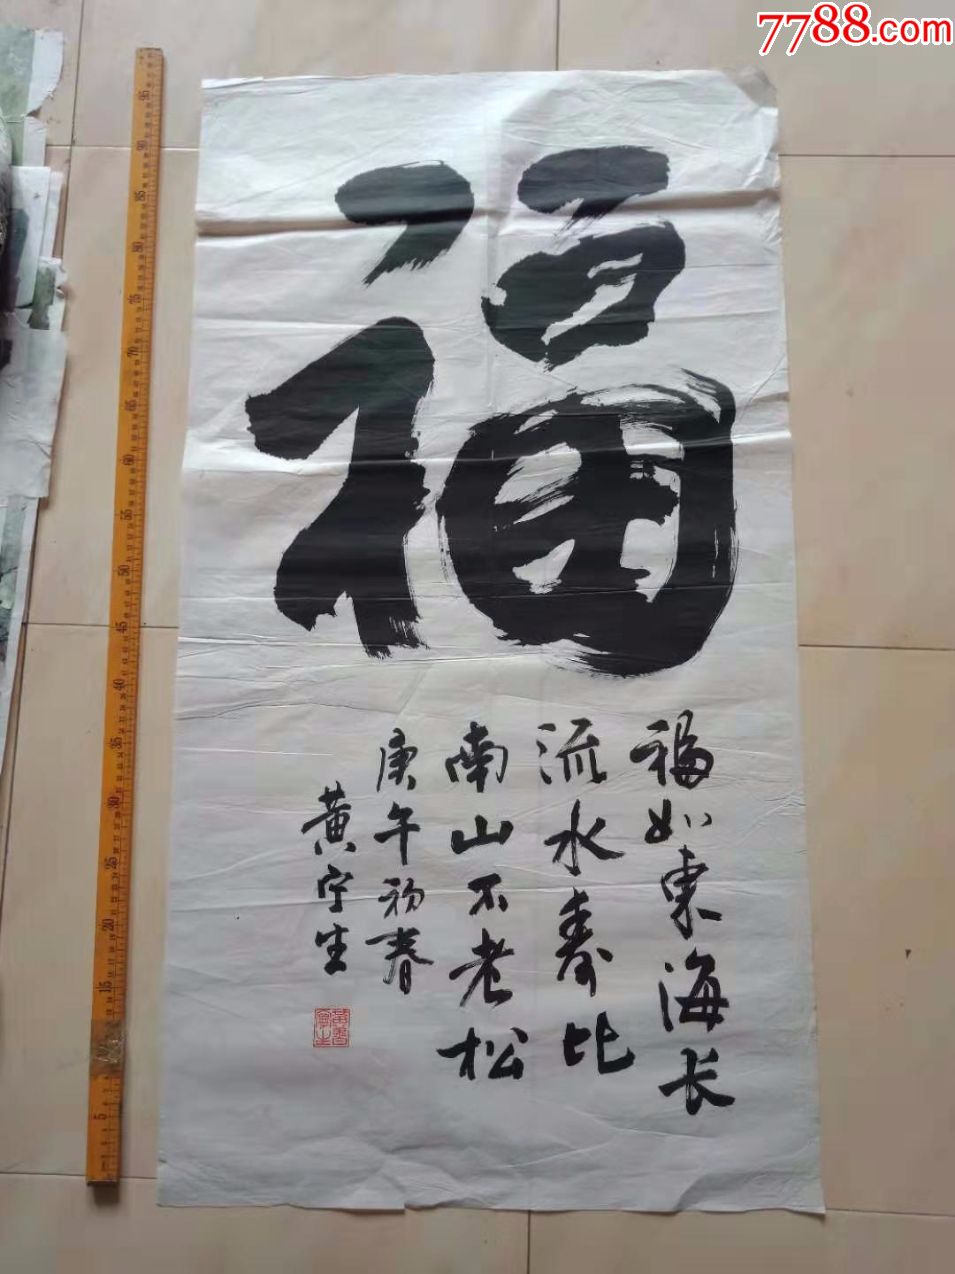 7788.com
福
福如东海长
流水寿比
南山不老松
庚午初春
黄宁生
95
90
85
80
75
70
65
60
55
50
45
40
35
30
25
20
15
5